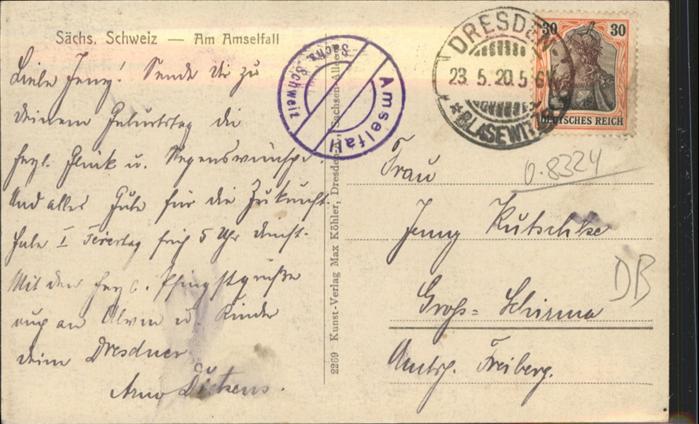 Sächs. Schweiz — Am Amselfall
Liebe Jeny! Sende Dir zu
deinem Geburtstag die
herzl. Glück u. Segenswünsche
Und alles Gute für die Zukunft.
Habe I Feiertag früh 5 Uhr Dienst.
Mit den herzl. Pfingstgrüße
auch an Alwin u. Kinder
deine Dresdner
Arno
Sächs. Schweiz
Amselfall
2269 Kunst-Verlag Max Köhler, Dresden
DRESDEN-
23. 5. 20. 5-6
* BLASEWITZ
30 30
DEUTSCHES REICH
0.8324
DB
Frau
Jeny Kutschke
Gross-Schirma
Amtsh. Freiberg.